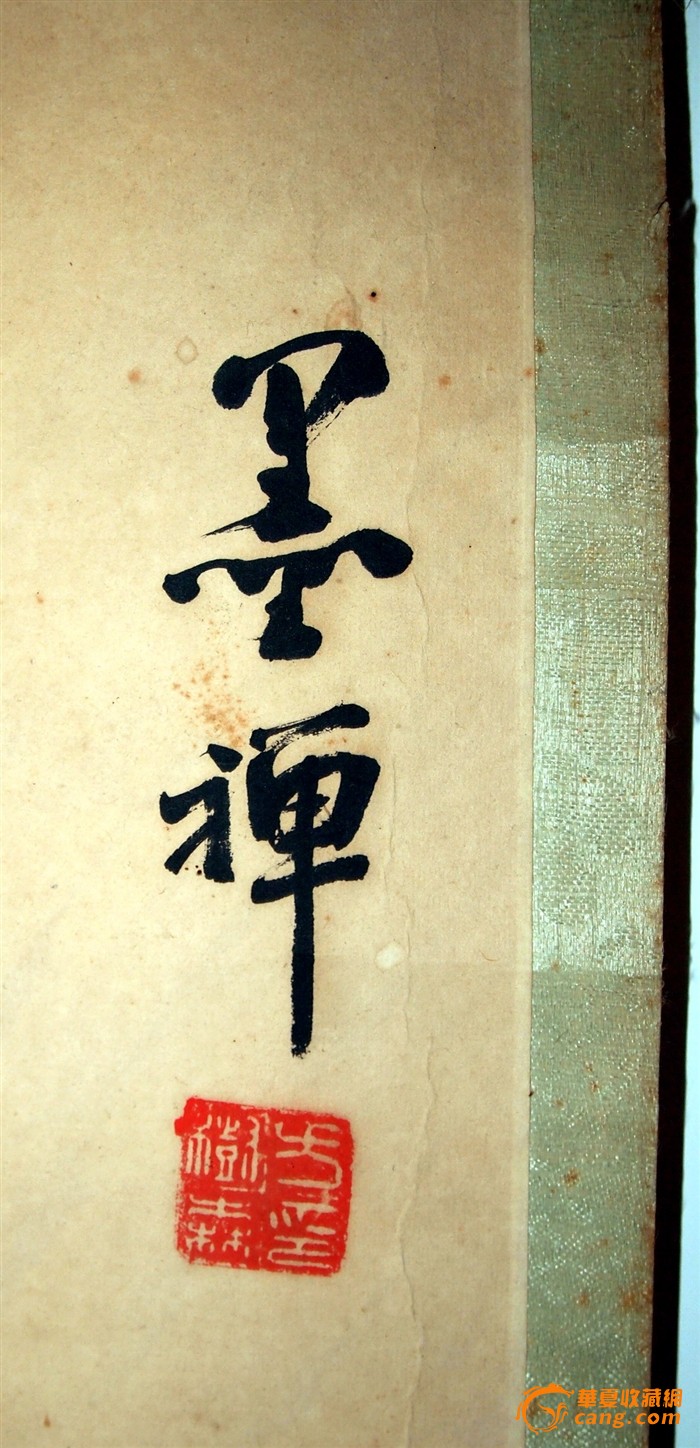 墨禅
樹森
華夏收藏網
cang.com